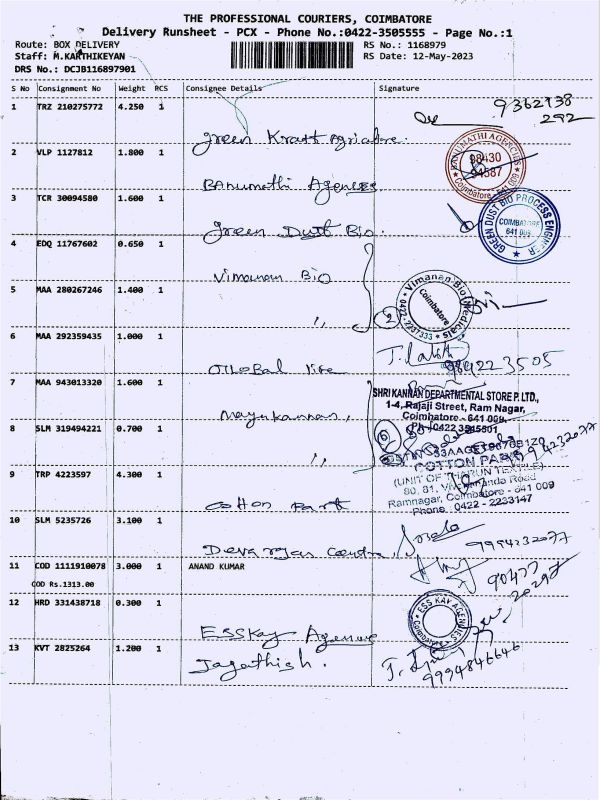 THE PROFESSIONAL COURIERS, COIMBATORE
Delivery Runsheet - PCX - Phone No.:0422-3505555 - Page No.:1
Route: BOX DELIVERY
RS No.: 1168979
Staff: M.KARTHIKEYAN
RS Date: 12-May-2023
DRS No.: DCJB116897901
S No Consignment No Weight PCS Consignee Details Signature
1 TRZ 210275772 4.250 1
9362138
292
Green
2 VLP 1127812 1.800 1
BANUMATHI AGENCIES
98430
94587
Coimbatore - 641 009
Banumathi Agencies
3 TCR 30094580 1.600 1
GREEN DUST BIO PROCESS ENGINEER
COIMBATORE
641 009
Green Dust Bio.
4 EDQ 11767602 0.650 1
Vimanam Bio
5 MAA 280267246 1.400 1
2
Vimanan Bio Medicals
Coimbatore
0422-2237333
"
6 MAA 292359435 1.000 1
Global life
7 MAA 943013320 1.600 1
SHRI KANNAN DEPARTMENTAL STORE P. LTD.,
1-4, Rajaji Street, Ram Nagar,
Coimbatore - 641 009,
Mayukannan,
8 SLM 319494221 0.700 1
"
COTTON PARK
9 TRP 4223597 4.300 1
80, 81,
Ramnagar, Coimbatore - 641 009
Phone : 0422 - 2233147
Cotton Park
10 SLM 5235726 3.100 1
Devarajan
9994232077
11 COD 1111910078 3.000 1 ANAND KUMAR
COD Rs.1313.00
90477
20297
12 HRD 331438718 0.300 1
ESS KAY AGENCIES
Coimbatore
ESSKay Agencies
13 KVT 2825264 1.200 1
Jagathish.
9994846646